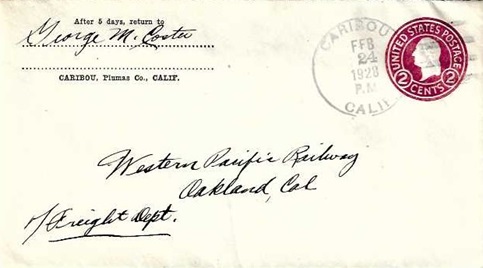 After 5 days, return to
George M. Costar
CARIBOU, Plumas Co., CALIF.
CARIBOU
FEB
24
1928
P.M.
CALIF.
UNITED STATES POSTAGE
2 CENTS 2
Western Pacific Railway
Oakland, Cal
% Freight Dept.